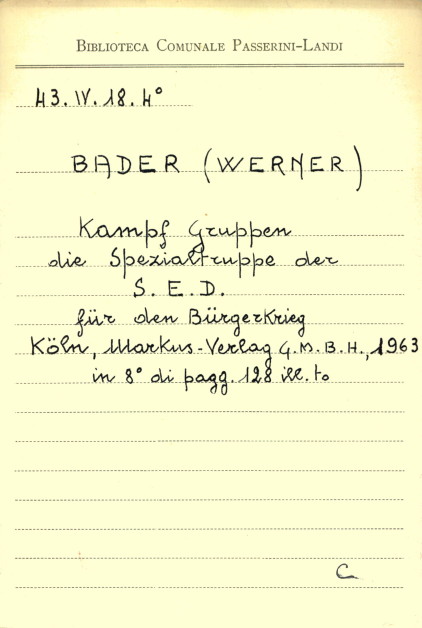 BIBLIOTECA COMUNALE PASSERINI-LANDI
43. IV. 18. 4°
BADER (WERNER)
Kampf Gruppen
die Spezialtruppe der
S. E. D.
für den Bürgerkrieg
Köln, Markus-Verlag G.M.B.H., 1963
in 8° di pagg. 128 ill. to
C